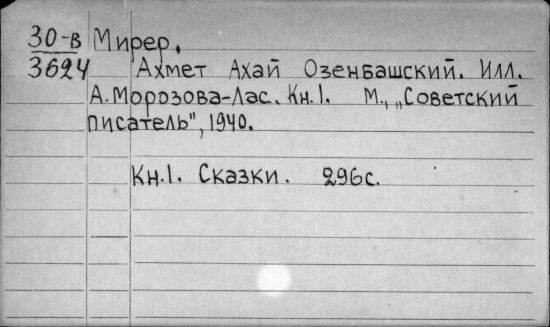 30-в Мирер,
3624 Ахмет Ахай Озенбашский. Илл.
А. Морозова-Лас. Кн.1. М., „Советский
писатель", 1940.
Кн.1. Сказки. 296с.